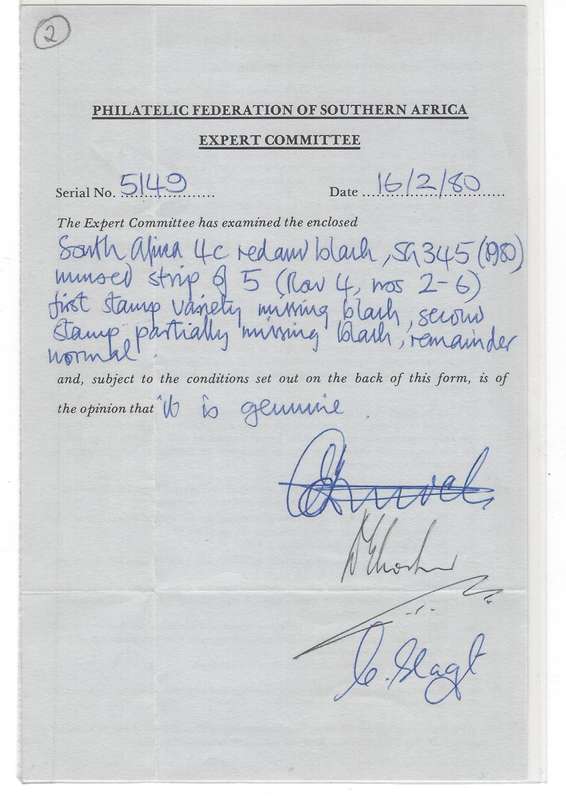 2
PHILATELIC FEDERATION OF SOUTHERN AFRICA
EXPERT COMMITTEE
Serial No. 5149 Date 16/2/80
The Expert Committee has examined the enclosed
South Africa 4c red and black, SG 345 (1980)
unused strip of 5 (Row 4, nos 2-6)
first stamp variety missing black, second
stamp partially missing black, remainder
normal.
and, subject to the conditions set out on the back of this form, is of
the opinion that it is genuine.
C. Slagt